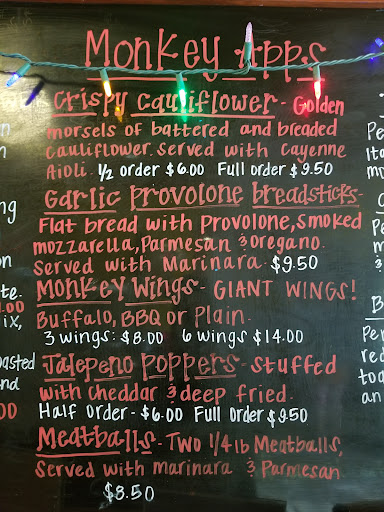 Monkey Apps
Crispy cauliflower - Golden
morsels of battered and breaded
cauliflower. served with cayenne
Aioli. 1/2 order $6.00 Full order $9.50
Garlic provolone breadsticks-
Flat bread with Provolone, smoked
mozzarella, Parmesan & oregano.
Served with Marinara. $9.50
Monkey wings - GIANT WINGS!
Buffalo, BBQ or Plain.
3 wings. $8.00 6 wings $14.00
Jalepeno poppers - stuffed
with cheddar & deep fried.
Half order - $6.00 Full Order $9.50
Meatballs - Two 1/4 lb Meatballs,
Served with marinara & Parmesan.
$8.50